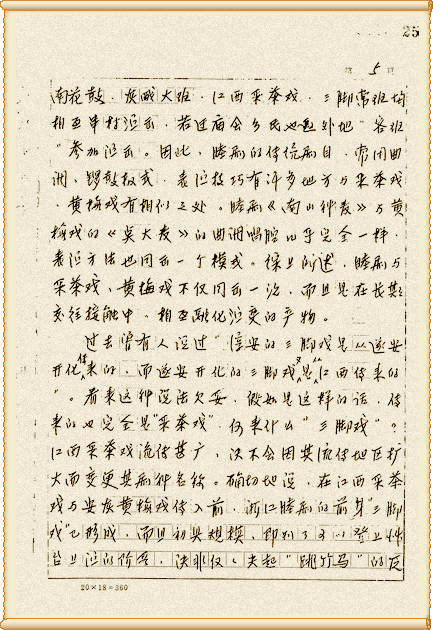 25
第 5 页
南花鼓、徽戏大班、江西采茶戏、三脚常班均
相互串村演出，若过庙会乡民也邀外地“客班
”参加演出。因此，睦剧的传统剧目，常用曲
调，锣鼓板式，表演技巧有许多地方与采茶戏
、黄梅戏有相似之处。睦剧《南山种麦》与黄
梅戏的《吴大麦》的曲调唱腔几乎完全一样，
表演方法也同出一个模式。综上所述，睦剧与
采茶戏、黄梅戏不仅同出一流，而且是在长期
交往接触中，相互融化演变的产物。
过去曾有人说过“淳安的三脚戏是从遂安
开化传来的，而遂安开化的三脚戏又是从江西传来的
”。看来这种说法欠妥，假如是这样的话，传
来的也完全是“采茶戏”，何来什么“三脚戏”？
江西采茶戏流传甚广，决不会因其流传地区扩
大而变更其剧种名称。确切地说，在江西采茶
戏与安庆黄梅戏传入前，浙江睦剧的前身“三脚
戏”已形成，而且初具规模，即到了可以登上
台上演的阶段，决非仅仅关起“跳竹马”的反
20×18=360